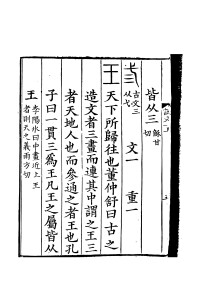 皆从三 穌甘切
古文三从弋
文一 重一
王 天下所歸往也董仲舒曰古之
造文者三畫而連其中謂之王三
者天地人也而參通之者王也孔
子曰一貫三爲王凡王之屬皆从
王 李陽冰曰中畫近上王者則天之義雨方切